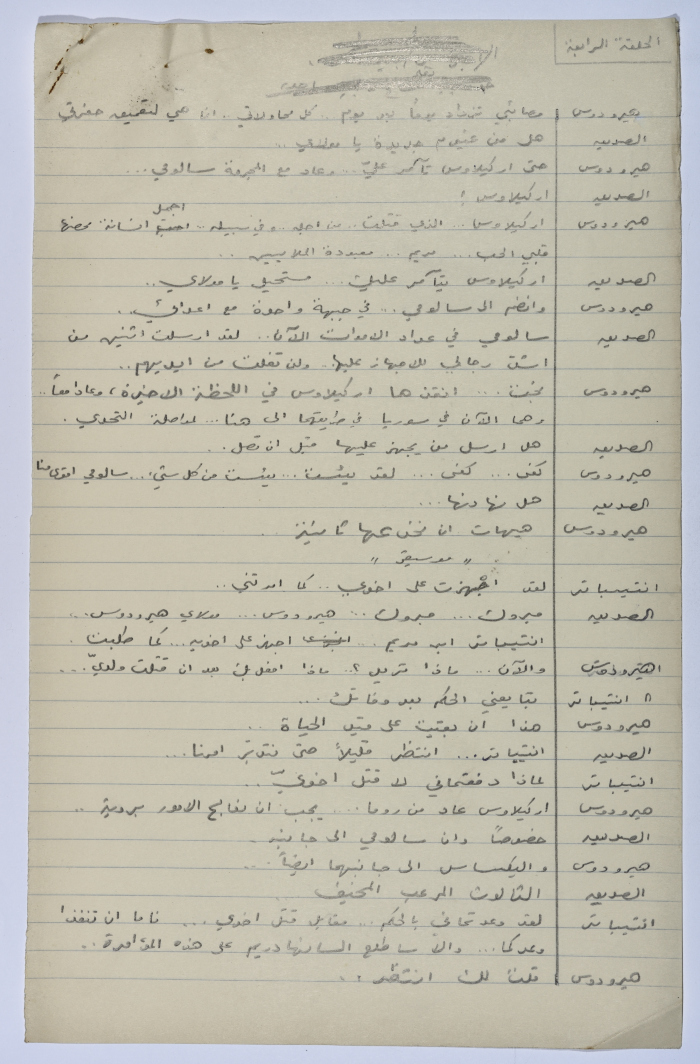 الحلقة الرابعة
هيرودوس مصائبي تزداد يوماً بعد يوم .. كل محاولاتي .. ان هي لتعميق حفرتي
الصديق هل من غيوم جديدة يا مولاي ..
هيرودوس حتى اركيلاوس تآمر عليّ ... وعاد مع المجرمة سالومي ...
الصديق اركيلاوس !
هيرودوس اركيلاوس ... الذي قتلت .. من اجله .. وفي سبيله .. اجمل انسانة
قلبي الحب ... مريم .. معبودة الملايين ...
الصديق اركيلاوس يتآمر عليك ... مستحيل يا مولاي ..
هيرودوس وانضم الى سالومي ... في جبهة واحدة مع اعدائي ..
الصديق سالومي في عداد الاموات الآن .. لقد ارسلت اثنين من
اشد رجالي للاجهاز عليها .. ولن تفلت من ايديهم ..
هيرودوس نجت ... انقذها اركيلاوس في اللحظة الاخيرة ، وعادا معاً ..
وهما الآن في سوريا في طريقهما الى هنا ... لمواصلة التحدي .
الصديق هل ارسل من يجهز عليها قبل ان تصل ..
هيرودوس كفى ... كفى ... لقد يئست ... يئست من كل شيء ... سالومي اقوى منا
الصديق هل نهادنها ...
هيرودوس هيهات ان نخدعها ثانية
" موسيقى "
انتيباتر لقد اجهزت على اخوي .. كما امرتني ..
الصديق مبروك ... مبروك .. هيرودوس ... مولاي هيرودوس ...
انتيباتر ابن مريم ... اجهز على اخويه ... كما طلبت .
هيرودوس والآن ... ماذا تريد ؟ .. ماذا افعل بك بعد ان قتلت ولديّ ...
انتيباتر تبايعني الحكم بعد وفاتك ...
هيرودوس هذا ان بقيت على قيد الحياة ..
الصديق انتيباتر ... انتظر قليلاً حتى نتدبّر امرنا ...
انتيباتر لماذا دفعتماني لا قتل اخويّ ..
هيرودوس اركيلاوس عاد من روما ... يجب ان نعالج الامور بروية ..
الصديق خصوصاً وان سالومي الى جانبه .
هيرودوس واليكساس الى جانبهما ايضاً ...
الصديق الثالوث المرعب المخيف
انتيباتر لقد وعدتماني بالحكم ... مقابل قتل اخوي ... فاما ان تنفذا
وعدكما ... والا ساطلع على هذه المؤامرة ..
هيرودوس قلت لك انتظر ..